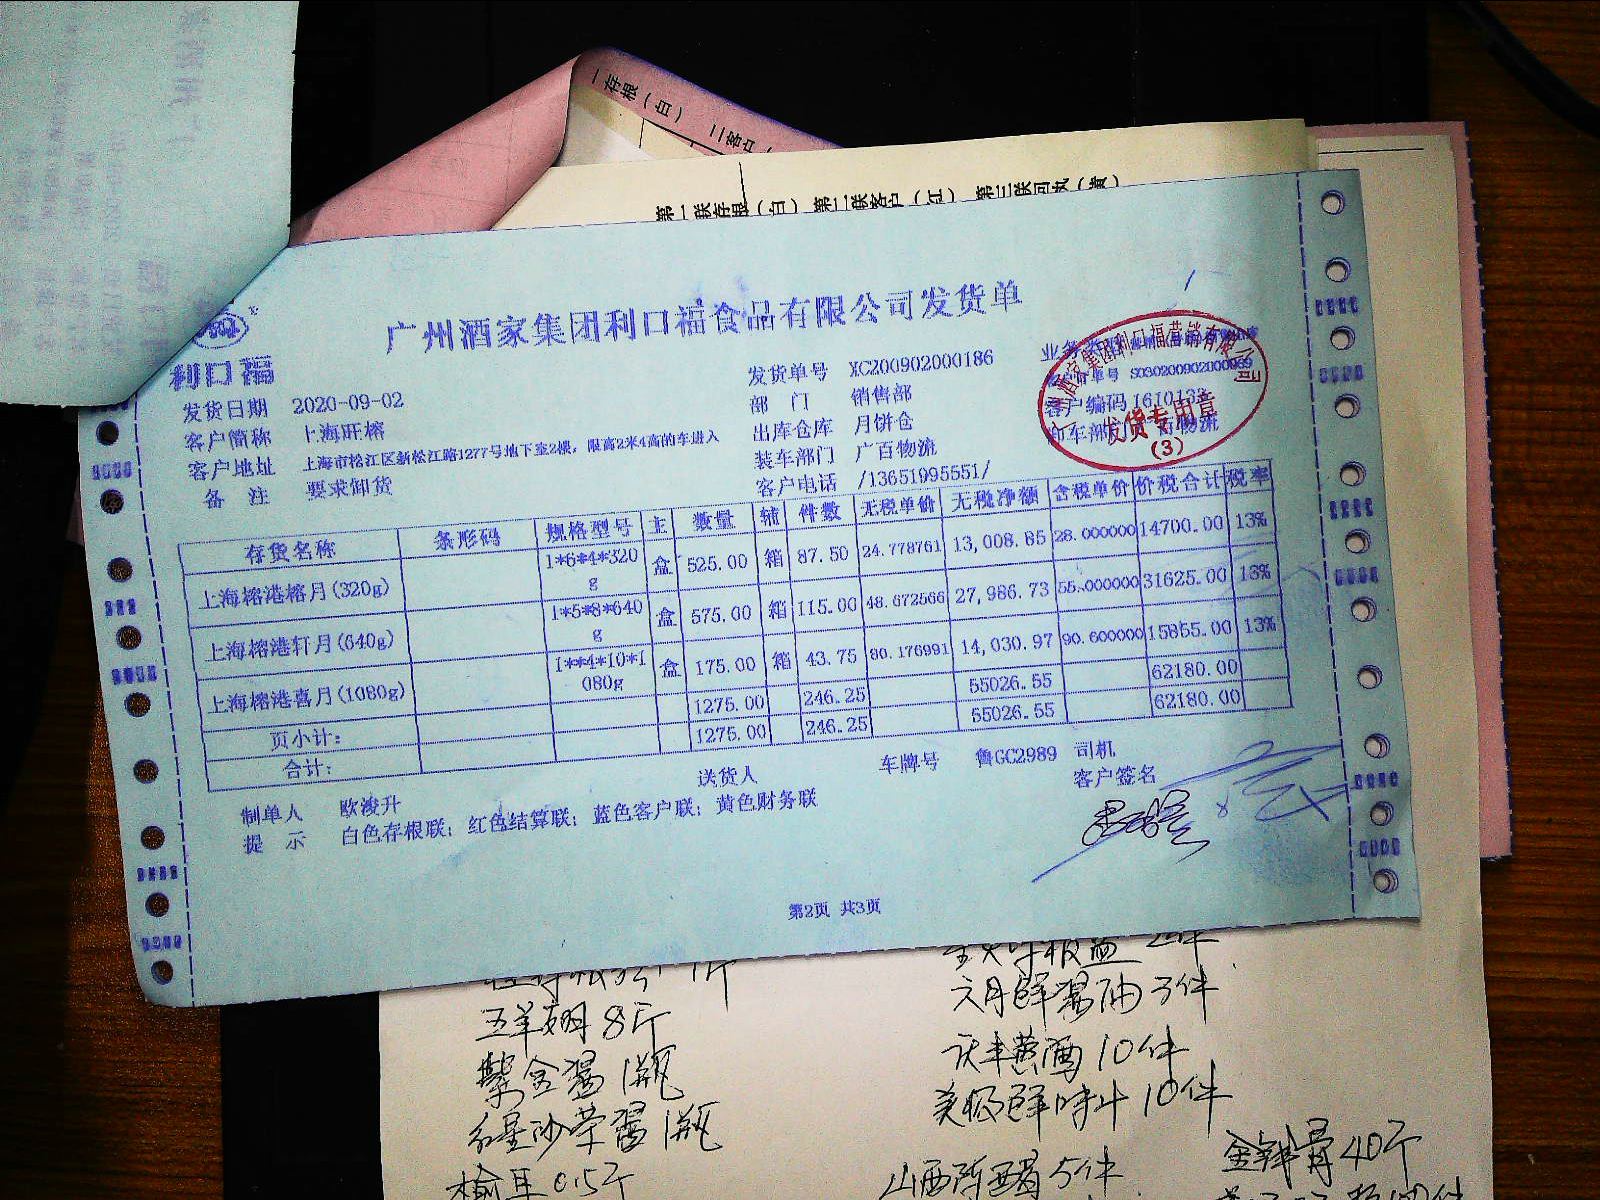 一存根（白）　二客户
第一联存根（白）第二联客户（红）第三联司机（黄）
广州酒家集团利口福食品有限公司发货单
利口福
发货日期 2020-09-02
客户简称 上海旺榕
客户地址 上海市松江区新松江路1277号地下室2楼，限高2米4高的车进入
备 注 要求卸货
发货单号 XC200902000186
部 门 销售部
出库仓库 月饼仓
装车部门 广百物流
客户电话 /13651995551/
客户编码 1610133
发货专用章
(3)
存货名称 条形码 规格型号 主 数量 辅 件数 无税单价 无税净额 含税单价 价税合计 税率
上海榕港榕月(320g) 1*6*4*320g 盒 525.00 箱 87.50 24.778761 13,008.85 28.000000 14700.00 13%
上海榕港轩月(640g) 1*5*8*640g 盒 575.00 箱 115.00 48.672566 27,986.73 55.000000 31625.00 13%
上海榕港喜月(1080g) 1**4*10*1080g 盒 175.00 箱 43.75 80.176991 14,030.97 90.600000 15855.00 13%
页小计: 1275.00 246.25 55026.55 62180.00
合计: 1275.00 246.25 55026.55 62180.00
制单人 欧浚升 送货人 车牌号 鲁GC2989 司机
客户签名
提 示 白色存根联；红色结算联；蓝色客户联；黄色财务联
第2页 共3页
六月鲜酱油3件
五羊奶8斤
紫金酱1瓶
10件
美极鲜味汁10件
1瓶
榆耳0.5斤
山西陈醋5件
40斤